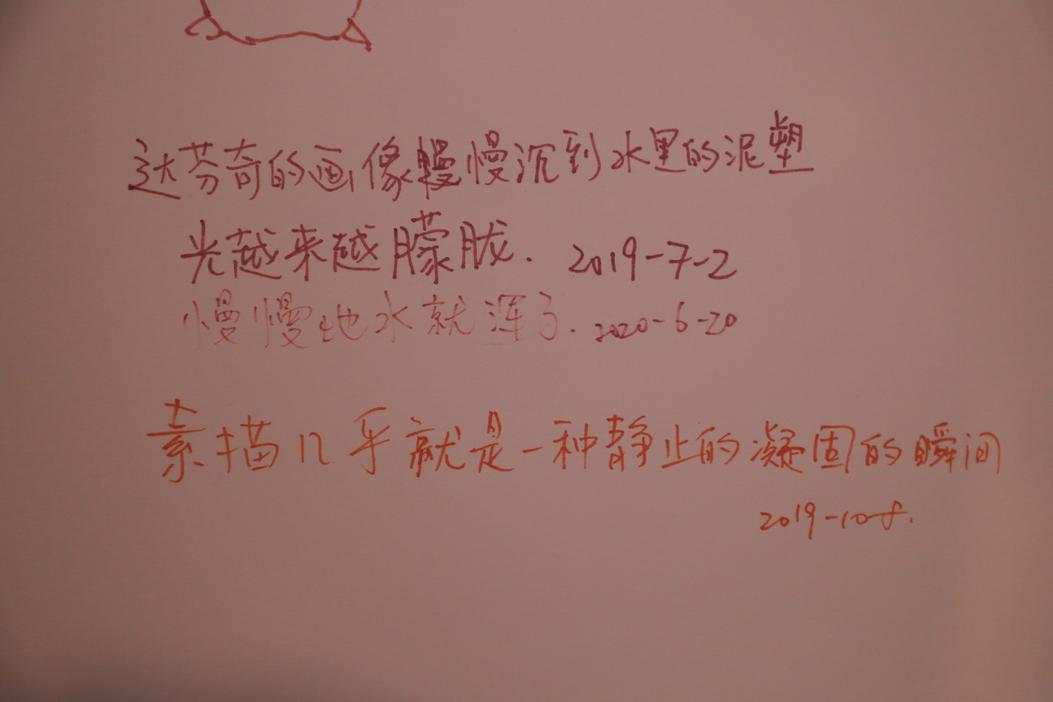 达芬奇的画像慢慢沉到水里的泥塑
光越来越朦胧. 2019-7-2
慢慢地水就浑了. 2020-6-20
素描几乎就是一种静止的凝固的瞬间
2019-10-8.